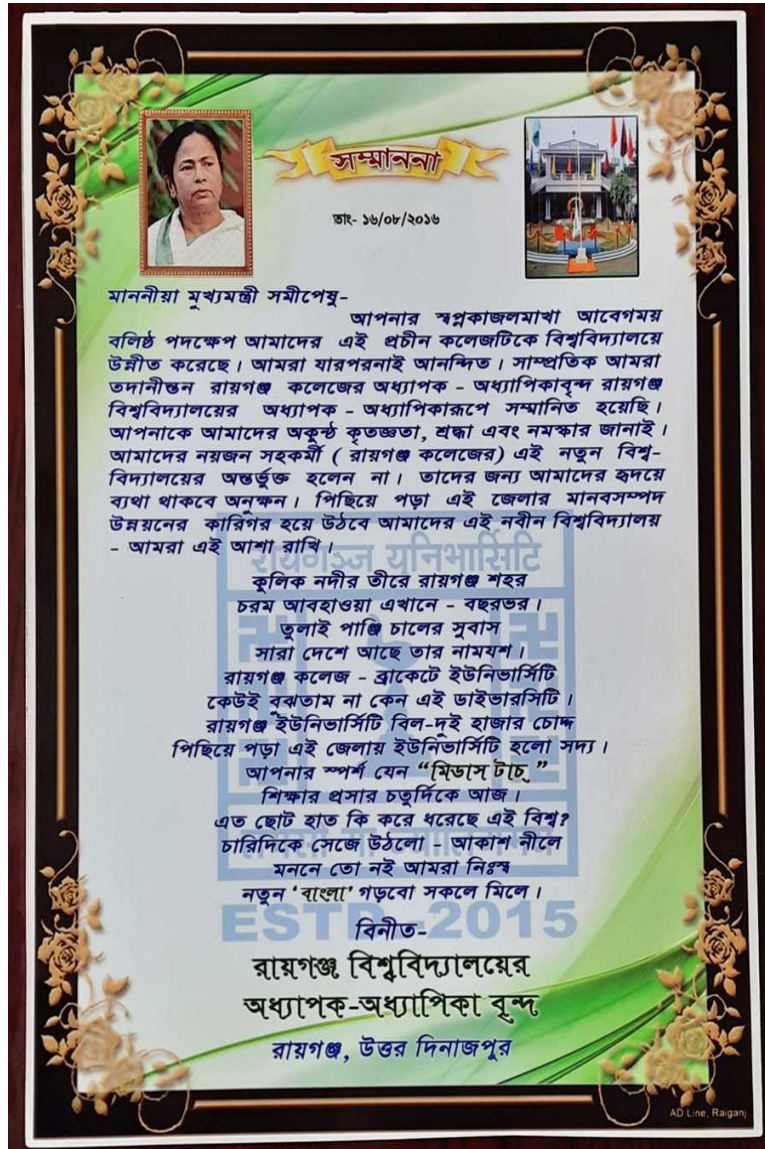 সম্মাননা
তাং- ১৬/০৮/২০১৬
মাননীয়া মুখ্যমন্ত্রী সমীপেষু-
আপনার স্বপ্নকাজলমাখা আবেগময়
বলিষ্ঠ পদক্ষেপ আমাদের এই প্রচীন কলেজটিকে বিশ্ববিদ্যালয়ে
উন্নীত করেছে। আমরা যারপরনাই আনন্দিত। সাম্প্রতিক আমরা
তদানীন্তন রায়গঞ্জ কলেজের অধ্যাপক - অধ্যাপিকাবৃন্দ রায়গঞ্জ
বিশ্ববিদ্যালয়ের অধ্যাপক - অধ্যাপিকারূপে সম্মানিত হয়েছি।
আপনাকে আমাদের অকুন্ঠ কৃতজ্ঞতা, শ্রদ্ধা এবং নমস্কার জানাই।
আমাদের নয়জন সহকর্মী ( রায়গঞ্জ কলেজের) এই নতুন বিশ্ব-
বিদ্যালয়ের অন্তর্ভুক্ত হলেন না। তাদের জন্য আমাদের হৃদয়ে
ব্যথা থাকবে অনুক্ষন। পিছিয়ে পড়া এই জেলার মানবসম্পদ
উন্নয়নের কারিগর হয়ে উঠবে আমাদের এই নবীন বিশ্ববিদ্যালয়
- আমরা এই আশা রাখি।
रायगঞ্জ यूनिभार्सिटि
কুলিক নদীর তীরে রায়গঞ্জ শহর
চরম আবহাওয়া এখানে - বছরভর।
তুলাই পাঞ্জি চালের সুবাস
সারা দেশে আছে তার নামযশ।
রায়গঞ্জ কলেজ - ব্রাকেটে ইউনিভার্সিটি
কেউই বুঝতাম না কেন এই ডাইভারসিটি।
রায়গঞ্জ ইউনিভার্সিটি বিল-দুই হাজার চোদ্দ
পিছিয়ে পড়া এই জেলায় ইউনিভার্সিটি হলো সদ্য।
আপনার স্পর্শ যেন “মিডাস টাচ্”
শিক্ষার প্রসার চতুর্দিকে আজ।
এত ছোট হাত কি করে ধরেছে এই বিশ্ব?
চারিদিকে সেজে উঠলো - আকাশ নীলে
মননে তো নই আমরা নিঃস্ব
নতুন ‘বাংলা’ গড়বো সকলে মিলে।
ESTD.-2015
বিনীত-
রায়গঞ্জ বিশ্ববিদ্যালয়ের
অধ্যাপক-অধ্যাপিকা বৃন্দ
রায়গঞ্জ, উত্তর দিনাজপুর
AD Line, Raiganj